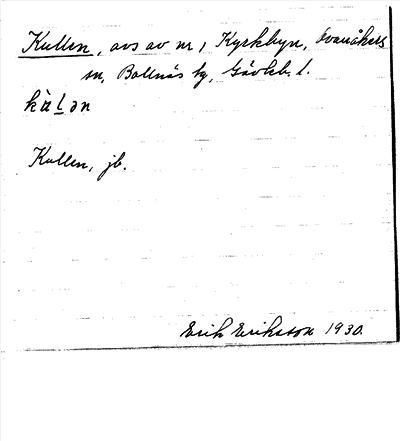 Kullen, avs av nr 1 Kyrkbyn, Ovanåkers
sn, Bollnäs tg, Gävleb. l.
kùl̲ən
Kullen, jb.
Erik Eriksson 1930.